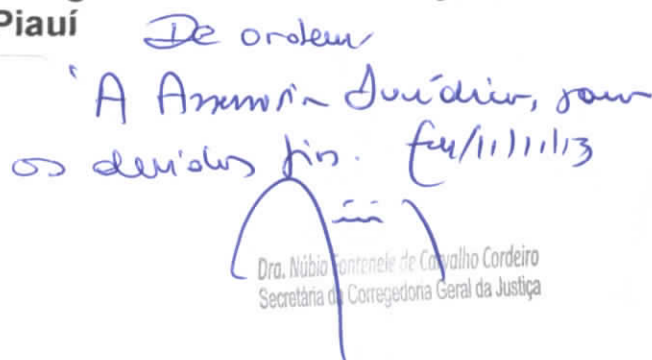 Piauí
De ordem
À Assessoria Jurídica, para
os devidos fins. Em/11/11/13
Dra. Núbia Fontenele de Carvalho Cordeiro
Secretária da Corregedoria Geral da Justiça